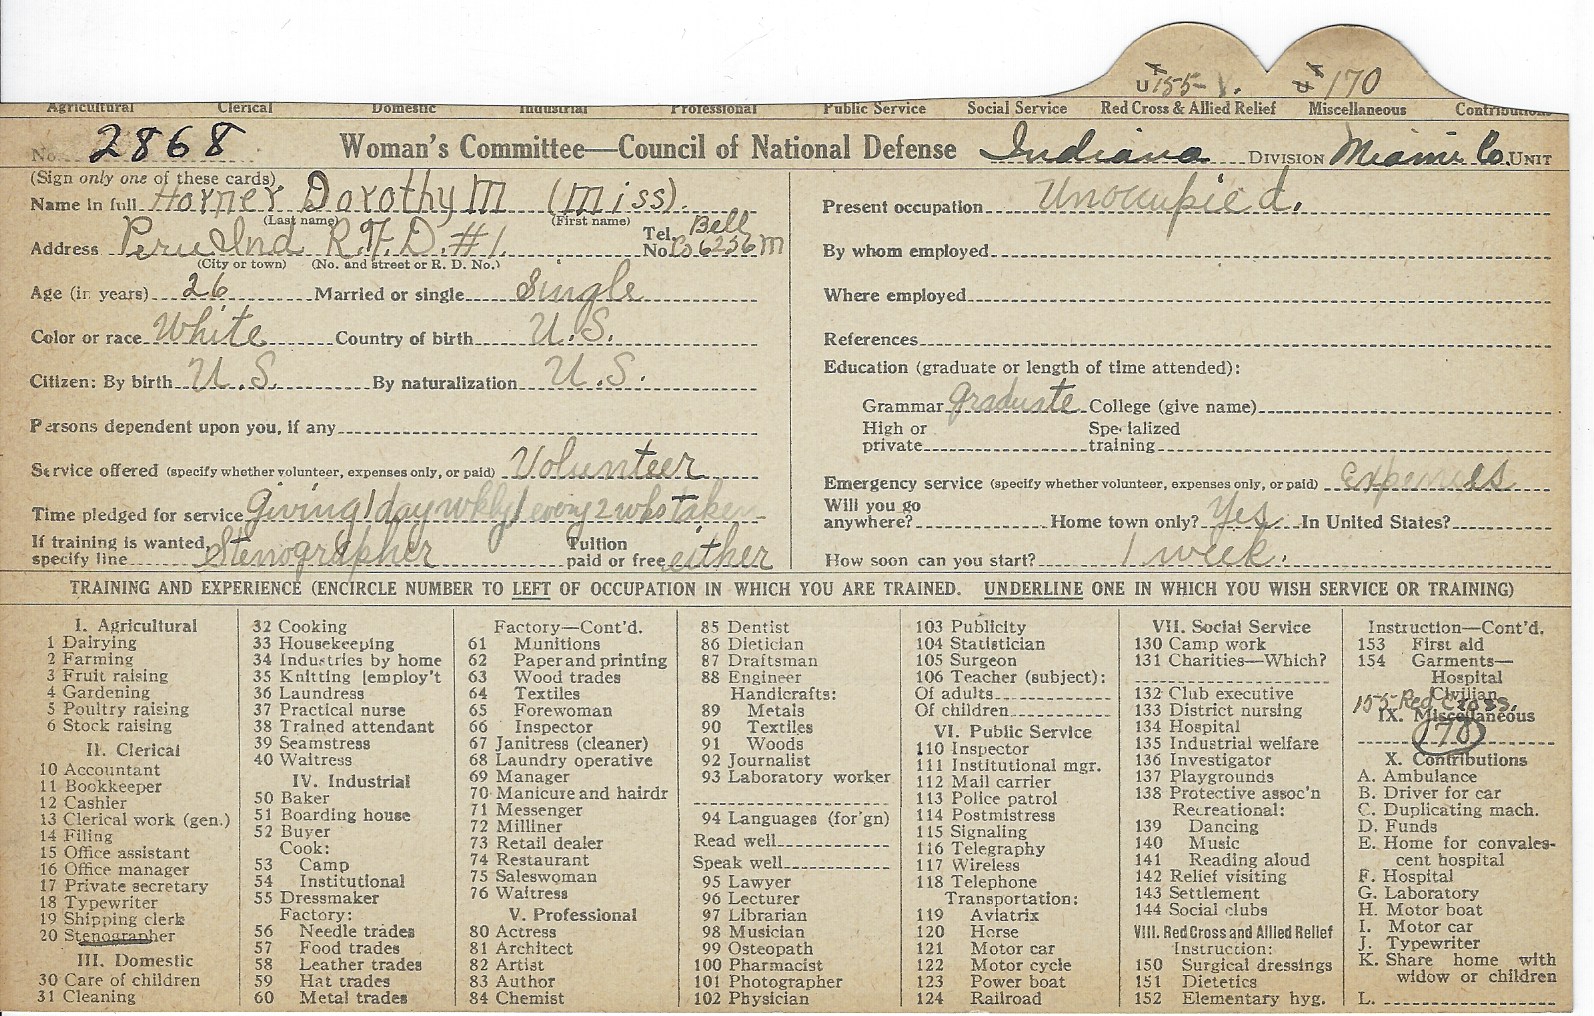 U 155- U 170
Agricultural Clerical Domestic Industrial Professional Public Service Social Service Red Cross & Allied Relief Miscellaneous Contributions
No. 2868 Woman's Committee—Council of National Defense Indiana DIVISION Miami Co. UNIT
(Sign only one of these cards)
Name in full Horner Dorothy M (Miss).
(Last name) (First name)
Address Peru Ind R.F.D. #1. Tel. No. Bell 6256M
(City or town) (No. and street or R. D. No.)
Age (in years) 26 Married or single Single
Color or race White Country of birth U.S.
Citizen: By birth U.S. By naturalization U.S.
Persons dependent upon you, if any
Service offered (specify whether volunteer, expenses only, or paid) Volunteer
Time pledged for service Giving 1 day wkly every 2 take
If training is wanted, specify line Stenographer Tuition paid or free either
Present occupation Unoccupied.
By whom employed
Where employed
References
Education (graduate or length of time attended):
Grammar graduate College (give name)
High or private Specialized training
Emergency service (specify whether volunteer, expenses only, or paid) Expenses
Will you go anywhere? Home town only? Yes In United States?
How soon can you start? 1 week.
TRAINING AND EXPERIENCE (ENCIRCLE NUMBER TO LEFT OF OCCUPATION IN WHICH YOU ARE TRAINED. UNDERLINE ONE IN WHICH YOU WISH SERVICE OR TRAINING)
I. Agricultural
1 Dairying
2 Farming
3 Fruit raising
4 Gardening
5 Poultry raising
6 Stock raising
II. Clerical
10 Accountant
11 Bookkeeper
12 Cashier
13 Clerical work (gen.)
14 Filing
15 Office assistant
16 Office manager
17 Private secretary
18 Typewriter
19 Shipping clerk
20 Stenographer
III. Domestic
30 Care of children
31 Cleaning
32 Cooking
33 Housekeeping
34 Industries by home
35 Knitting [employ't
36 Laundress
37 Practical nurse
38 Trained attendant
39 Seamstress
40 Waitress
IV. Industrial
50 Baker
51 Boarding house
52 Buyer
Cook:
53 Camp
54 Institutional
55 Dressmaker
Factory:
56 Needle trades
57 Food trades
58 Leather trades
59 Hat trades
60 Metal trades
Factory—Cont'd.
61 Munitions
62 Paper and printing
63 Wood trades
64 Textiles
65 Forewoman
66 Inspector
67 Janitress (cleaner)
68 Laundry operative
69 Manager
70 Manicure and hairdr
71 Messenger
72 Milliner
73 Retail dealer
74 Restaurant
75 Saleswoman
76 Waitress
V. Professional
80 Actress
81 Architect
82 Artist
83 Author
84 Chemist
85 Dentist
86 Dietician
87 Draftsman
88 Engineer
Handicrafts:
89 Metals
90 Textiles
91 Woods
92 Journalist
93 Laboratory worker
94 Languages (for'gn)
Read well
Speak well
95 Lawyer
96 Lecturer
97 Librarian
98 Musician
99 Osteopath
100 Pharmacist
101 Photographer
102 Physician
103 Publicity
104 Statistician
105 Surgeon
106 Teacher (subject):
Of adults
Of children
VI. Public Service
110 Inspector
111 Institutional mgr.
112 Mail carrier
113 Police patrol
114 Postmistress
115 Signaling
116 Telegraphy
117 Wireless
118 Telephone
Transportation:
119 Aviatrix
120 Horse
121 Motor car
122 Motor cycle
123 Power boat
124 Railroad
VII. Social Service
130 Camp work
131 Charities—Which?
132 Club executive
133 District nursing
134 Hospital
135 Industrial welfare
136 Investigator
137 Playgrounds
138 Protective assoc'n
Recreational:
139 Dancing
140 Music
141 Reading aloud
142 Relief visiting
143 Settlement
144 Social clubs
VIII. Red Cross and Allied Relief
Instruction:
150 Surgical dressings
151 Dietetics
152 Elementary hyg.
Instruction—Cont'd.
153 First aid
154 Garments—
Hospital
Civilian
155-Red Cross.
IX. Miscellaneous
170
X. Contributions
A. Ambulance
B. Driver for car
C. Duplicating mach.
D. Funds
E. Home for convales-
cent hospital
F. Hospital
G. Laboratory
H. Motor boat
I. Motor car
J. Typewriter
K. Share home with
widow or children
L.